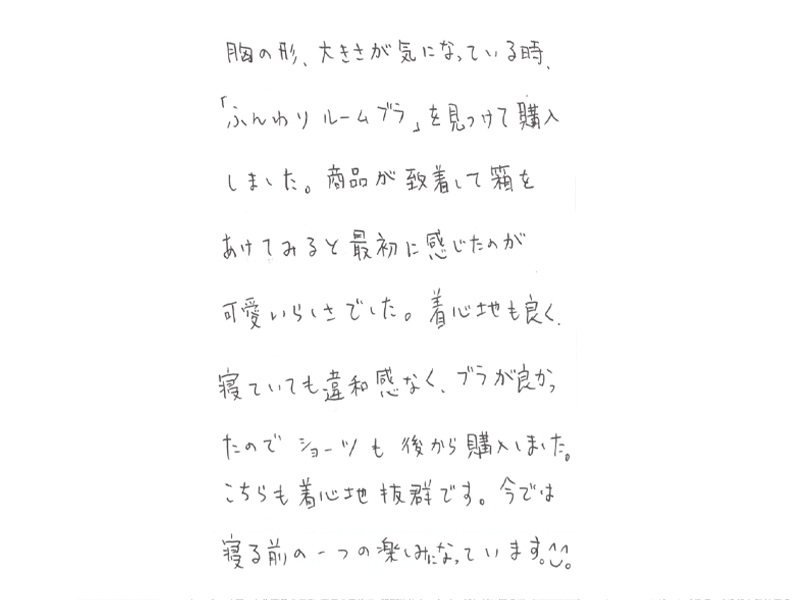 胸の形、大きさが気になっている時、
「ふんわりルームブラ」を見つけて購入
しました。商品が致着して箱を
あけてみると最初に感じたのが
可愛いらしさでした。着心地も良く、
寝ていても違和感なく、ブラが良かっ
たのでショーツも後から購入しました。
こちらも着心地抜群です。今では
寝る前の一つの楽しみになっています。^^